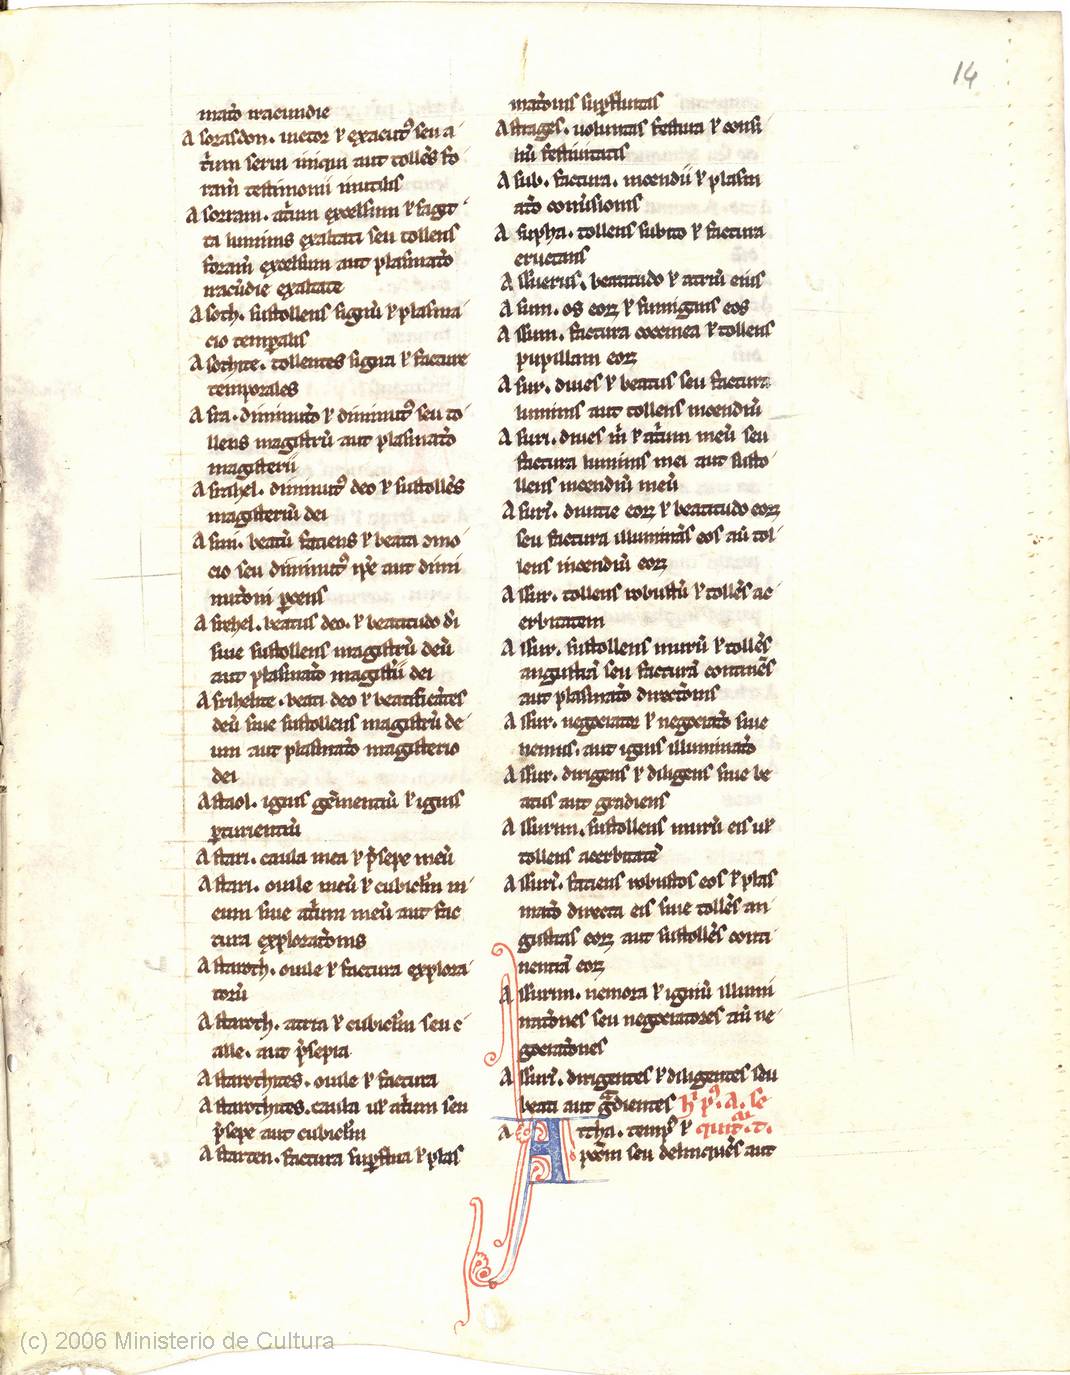 14
mat̄o iracundie
Asorasdon. uictor ł exacut᷒ seu a
tīum serui iniqui aut tollēs fo
ram̄ testimonii inutilis
Asorram. at̄um excelsum ł sagit
ta luminis exaltati seu tollens
foram̄ excelsum aut plasmat̄o
iracūdie exaltate
Asoth. sustollens signū ł plasma
cio temp̄alis
Asothite. tollentes signa ł facture
temporales
Asra. diminut̄o ł diminut᷒ seu to
llens magistrū aut plasmat̄o
magisterii
Asrahel. diminut᷒ deo ł sustollēs
magisteriū dei
Asrihel. beatus deo. ł beatitudo d̄i
siue sustollens magistrū deū
aut plasmat̄o magist̄ii dei
Asrihelite. beati deo ł beatificātes
deū siue sustollens magistrū de
um aut plasmat̄o magisterio
dei
Astaol. ignis gēmentiū ł ignis
ꝑturientiū
Astari. caula mea ł p̄sepe meū
Astari. ouile meū ł cubicl̄m m
eum siue at̄um meū aut fac
tura explorat̄onis
Astaroth. ouile ł factura explora
torū
Astaroth. atria ł cubicl̄m seu c
alle. aut p̄sepia
Astarothites. ouile ł factura
Astarothites. caula uł at̄um seu
p̄sepe aut cubicl̄m
Astarten. factura suꝑflua ł plas
mat̄onis suꝑfluitas
Astrages. uoluntas festiua ł consi
liū festiuitatis
Asub. factura. incendii ł plasm
at̄o conūsionis
Asupha. tollens subito ł factura
eructans
Assuerus. beatitudo ł atriū eius
Asum. os eoꝝ ł fumigans eos
Assum. factura coccinea ł tollens
pupillam eoꝝ
Asur. diues ł beatus seu factura
luminis aut tollens incendiū
Asuri. diues m̄ ł at̄um meū seu
factura luminis mei aut susto
llens incendiū meū
Asurī. diuitie eoꝝ ł beatitudo eoꝝ
seu factura illuminās eos aū tol
lens incendiū eoꝝ
Assur. tollens robustū ł tollēs ac
erbitatem
Assur. sustollens murū ł tollēs
angustiā seu facturā continēs
aut plasmat̄o direct̄onis
Assur. negociator ł negociat̄o siue
nemus. aut ignis illuminat̄o
Assur. dirigens ł diligens siue be
atus aut gradiens
Assurim. sustollens murū eis uł
tollens acerbitatē
Assurī. faciens robustos eos ł plas
mat̄o directa eis siue tollēs an
gustias eoꝝ aut sustollēs conti
nentiā eoꝝ
Assurim. nemora ł igniū illumi
nat̄ones seu negociatores aū ne
gociat̄ones
Assurī. dirigentes ł diligentes seu
beati aut gͣdientes h̄ p᷒. A. se
Attha. temp᷒ ł quit̄. t.
seu delinquēs aut
(c) 2006 Ministerio de Cultura